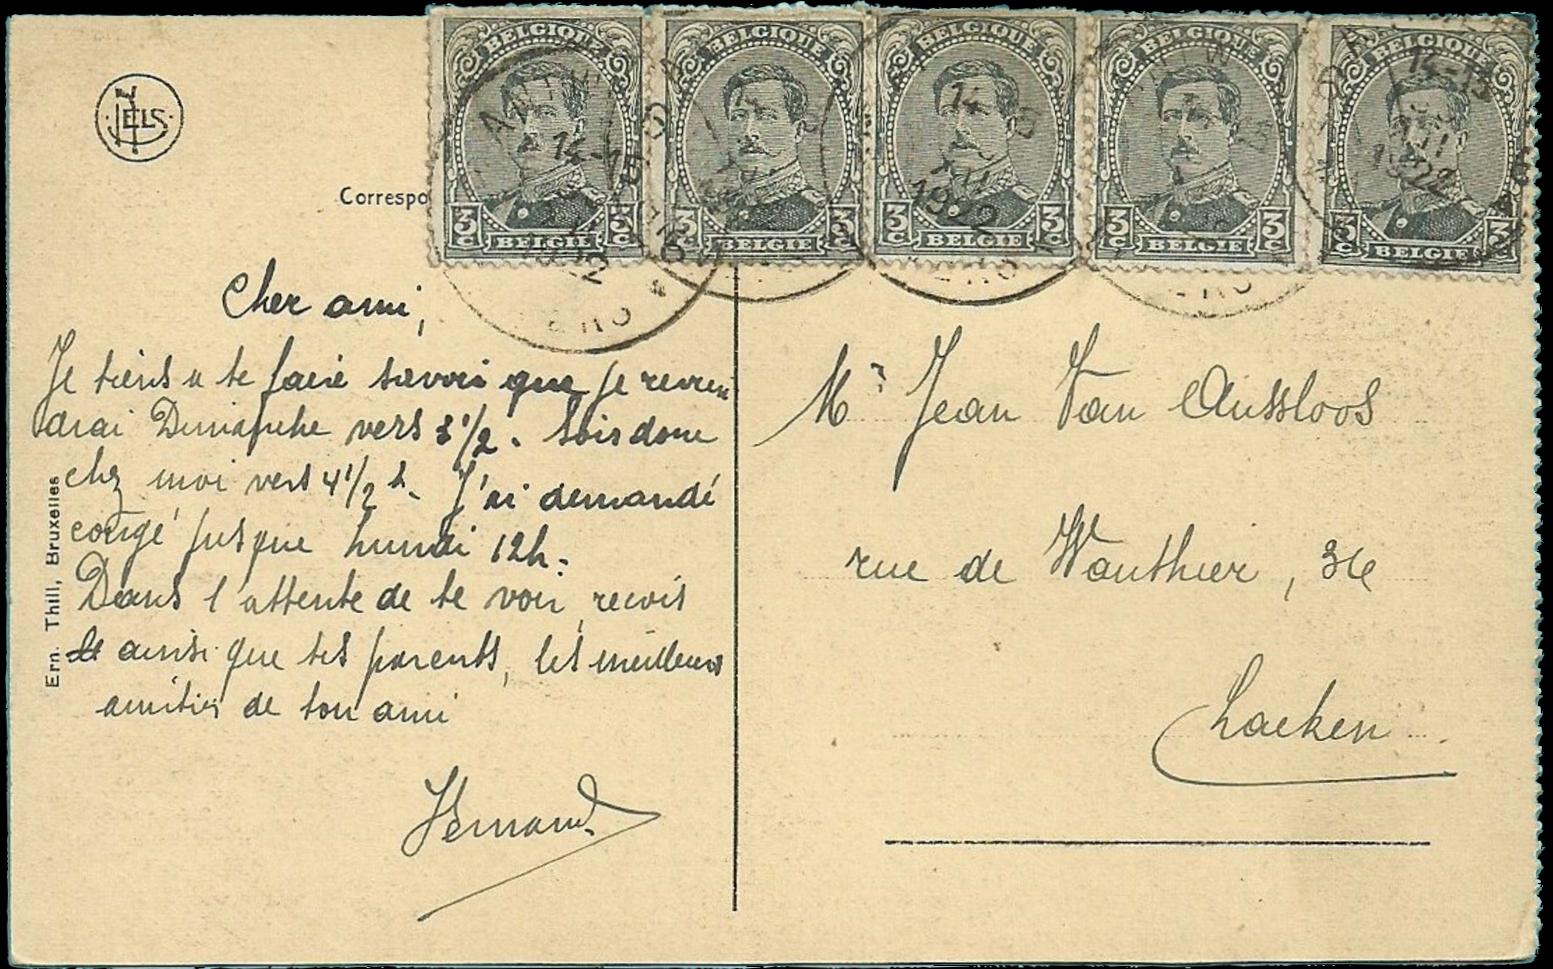 NELS
Correspo
BELGIQUE
3 C 3 C
BELGIE
BELGIQUE
3 C 3 C
BELGIE
BELGIQUE
3 C 3 C
BELGIE
BELGIQUE
3 C 3 C
BELGIE
BELGIQUE
3 C 3 C
BELGIE
14-15
1922
1922
14-15
1922
Cher ami,
Je tiens a te faire savoir que je revien
drai Dimanche vers 3 1/2. Sois donc
chez moi vers 4 1/2 h. J'ai demandé
congé jusque lundi 12h.
Dans l'attente de te voir, reçois
ainsi que tes parents, les meilleurs
amitiés de ton ami
Fernand
Ern. Thill, Bruxelles
Mr Jean Van Aussloos
rue de Wauthier, 36
Laeken